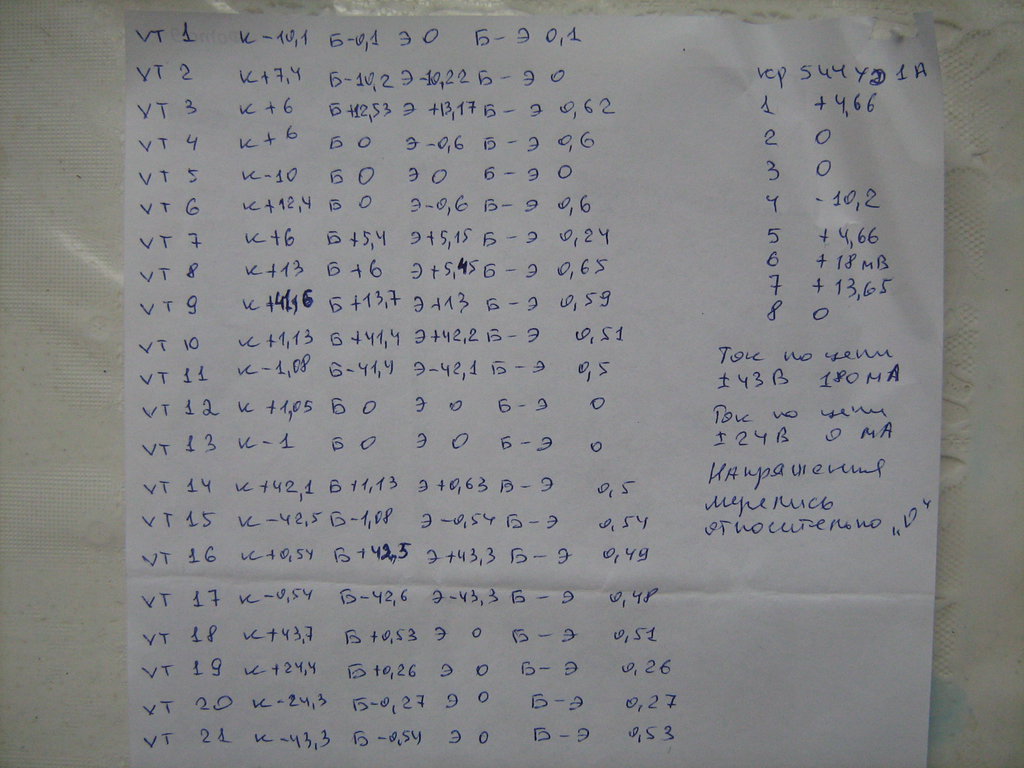 VT 1 К-10,1 Б-0,1 Э 0 Б-Э 0,1
VT 2 К+7,4 Б-10,2 Э-10,22 Б-Э 0
VT 3 К+6 Б+12,53 Э+13,17 Б-Э 0,62
VT 4 К+6 Б 0 Э-0,6 Б-Э 0,6
VT 5 К-10 Б 0 Э 0 Б-Э 0
VT 6 К+12,4 Б 0 Э-0,6 Б-Э 0,6
VT 7 К+6 Б+5,4 Э+5,15 Б-Э 0,24
VT 8 К+13 Б+6 Э+5,45 Б-Э 0,65
VT 9 К+41,6 Б+13,7 Э+13 Б-Э 0,59
VT 10 К+1,13 Б+41,4 Э+42,2 Б-Э 0,51
VT 11 К-1,08 Б-41,4 Э-42,1 Б-Э 0,5
VT 12 К+1,05 Б 0 Э 0 Б-Э 0
VT 13 К-1 Б 0 Э 0 Б-Э 0
VT 14 К+42,1 Б+1,13 Э+0,63 Б-Э 0,5
VT 15 К-42,5 Б-1,08 Э-0,54 Б-Э 0,54
VT 16 К+0,54 Б+42,5 Э+43,3 Б-Э 0,49
VT 17 К-0,54 Б-42,6 Э-43,3 Б-Э 0,48
VT 18 К+43,7 Б+0,53 Э 0 Б-Э 0,51
VT 19 К+24,4 Б+0,26 Э 0 Б-Э 0,26
VT 20 К-24,3 Б-0,27 Э 0 Б-Э 0,27
VT 21 К-43,3 Б-0,54 Э 0 Б-Э 0,53
кр 544 УД 1А
1 +4,66
2 0
3 0
4 -10,2
5 +4,66
6 +18мВ
7 +13,65
8 0
Ток по цепи
±43В 180мА
Ток по цепи
±24В 0 мА
Напряжения
мерелись
относительно „0“